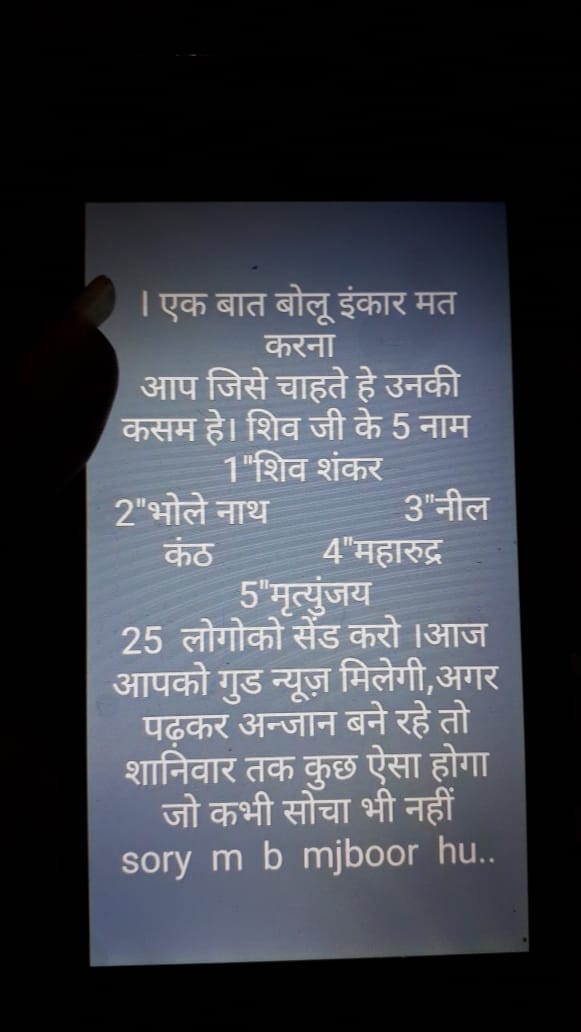 । एक बात बोलू इंकार मत
करना
आप जिसे चाहते हे उनकी
कसम हे। शिव जी के 5 नाम
1"शिव शंकर
2"भोले नाथ 3"नील
कंठ 4"महारुद्र
5"मृत्युंजय
25 लोगोको सेंड करो ।आज
आपको गुड न्यूज़ मिलेगी,अगर
पढ़कर अन्जान बने रहे तो
शानिवार तक कुछ ऐसा होगा
जो कभी सोचा भी नहीं
sory m b mjboor hu..